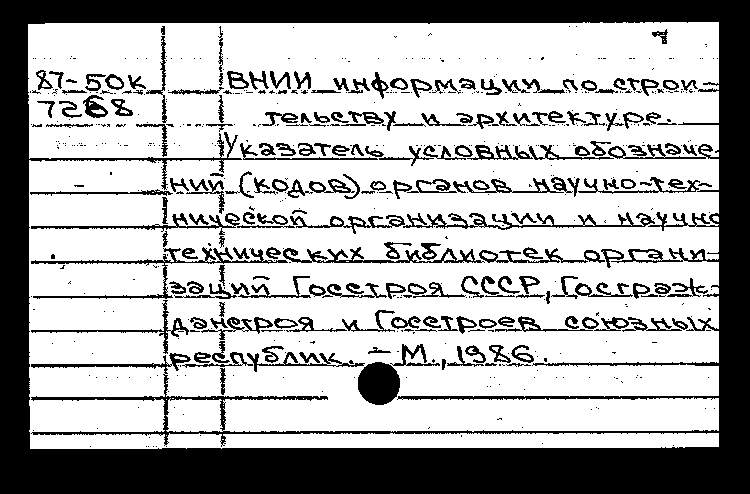 7
87-50к ВНИИ информации по строи-
7268 тельству и архитектуре.
Указатель условных обозначе
ний (кодов) органов научно-тех-
нической организации и научно
технических библиотек органи-
заций Госстроя СССР, Гостраж-
данстроя и Госстроев союзных
республик. – М., 1986.